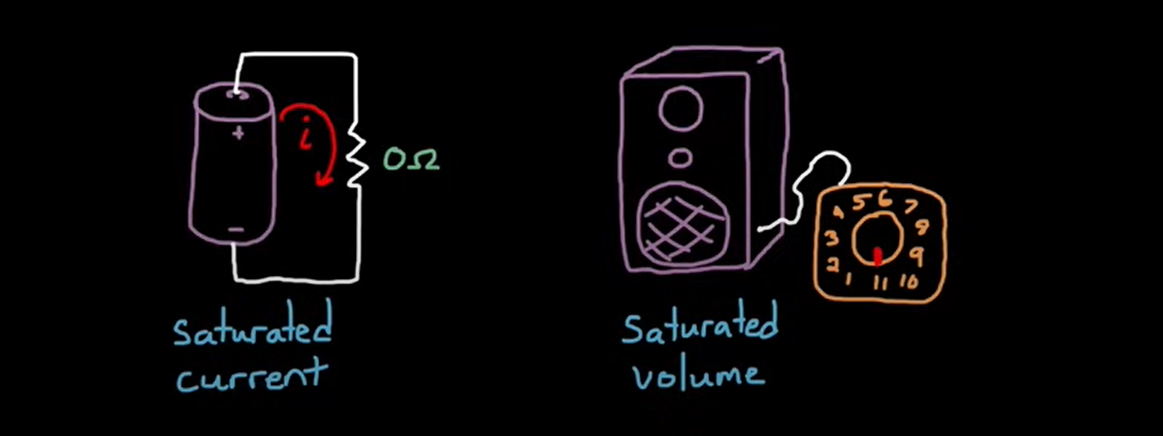 +
i
0Ω
−
Saturated
current
5 6 7
4 8
3 9
2 10
1 11
Saturated
volume